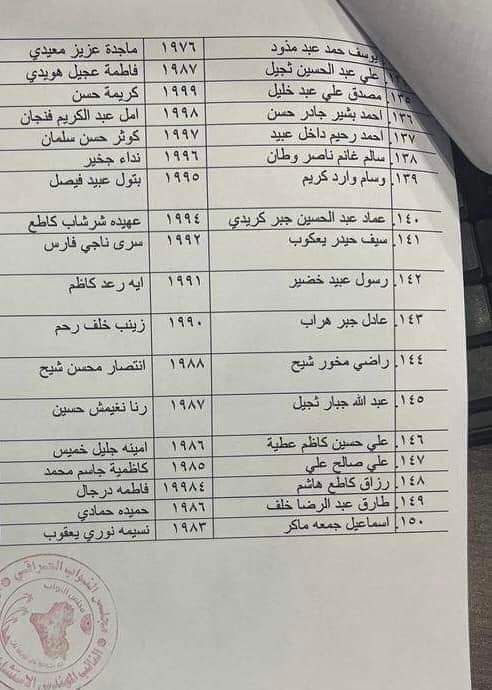 يوسف حمد عبد مذود ١٩٧٦ ماجدة عزيز معيدي
علي عبد الحسين ثجيل ١٩٨٧ فاطمة عجيل هويدي
١٣٥. مصدق علي عبد خليل ١٩٩٩ كريمة حسن
١٣٦. احمد بشير جادر حسن ١٩٩٨ امل عبد الكريم فنجان
١٣٧. احمد رحيم داخل عبيد ١٩٩٧ كوثر حسن سلمان
١٣٨. سالم غانم ناصر وطان ١٩٩٦ نداء جخير
١٣٩. وسام وارد كريم ١٩٩٥ بتول عبيد فيصل
١٤٠. عماد عبد الحسين جبر كريدي ١٩٩٤ عهيده شرشاب كاطع
١٤١. سيف حيدر يعكوب ١٩٩٢ سرى ناجي فارس
١٤٢. رسول عبيد خضير ١٩٩١ ايه رعد كاظم
١٤٣. عادل جبر هراب ١٩٩٠ زينب خلف رحم
١٤٤. راضي مخور شيح ١٩٨٨ انتصار محسن شيح
١٤٥. عبد الله جبار ثجيل ١٩٨٧ رنا نغيمش حسين
١٤٦. علي حسين كاظم عطية ١٩٨٦ امينه جليل خميس
١٤٧. علي صالح علي ١٩٨٥ كاظمية جاسم محمد
١٤٨. رزاق كاطع هاشم ١٩٩٨٤ فاطمه درجال
١٤٩. طارق عبد الرضا خلف ١٩٨٦ حميده حمادي
١٥٠. اسماعيل جمعه ماكر ١٩٨٣ نسيمه نوري يعقوب
مجلس النواب العراقي
مجلس النواب